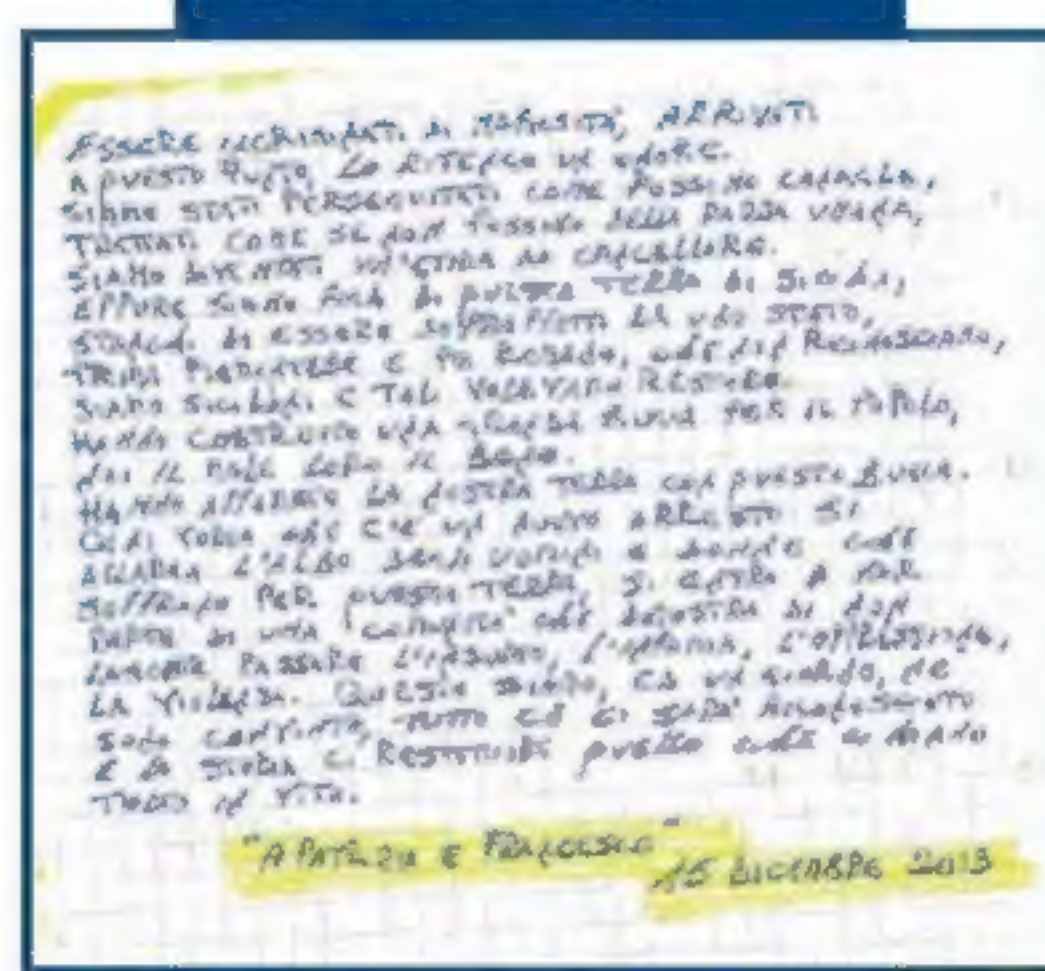 ESSERE INCRIMINATI DI MAFIOSITÀ, ARRIVATI
A QUESTO PUNTO, LO RITENGO UN ONORE.
SIAMO STATI PERSEGUITATI COME FOSSIMO CANAGLIA,
TRATTATI COME SE NON FOSSIMO DELLA RAZZA UMANA,
SIAMO DIVENTATI UN'ETNIA DA CANCELLARE.
EPPURE SIAMO FIGLI DI QUESTA TERRA DI SICILIA,
STANCHI DI ESSERE SOPRAFFATTI DA UNO STATO,
PRIMA PIEMONTESE E POI ROMANO, CHE NON RICONOSCIAMO,
SIAMO SICILIANI E TALI VOLEVAMO RESTARE.
HANNO COSTRUITO UNA GRANDE BUGIA PER IL POPOLO,
NOI IL MALE LORO IL BENE.
HANNO AFFAMATO LA NOSTRA TERRA CON QUESTA BUGIA.
OGNI VOLTA CHE C'È UN NUOVO ARRESTO SI
ALLARGA L'ALBO DEGLI UOMINI E DONNE CHE
SOFFRONO PER QUESTA TERRA, SI ENTRA A FAR
PARTE DI UNA COMUNITÀ CHE DIMOSTRA DI NON
LASCIAR PASSARE L'INSULTO, L'INFAMIA, L'OPPRESSIONE,
LA VIOLENZA. QUESTO SIAMO, ED UN GIORNO, NE
SONO CONVINTO, TUTTO CIÒ CI SARÀ RICONOSCIUTO
E LA STORIA CI RESTITUIRÀ QUELLO CHE CI HANNO
TOLTO IN VITA.
"A PATRIZIA E FRANCESCO"
15 DICEMBRE 2013